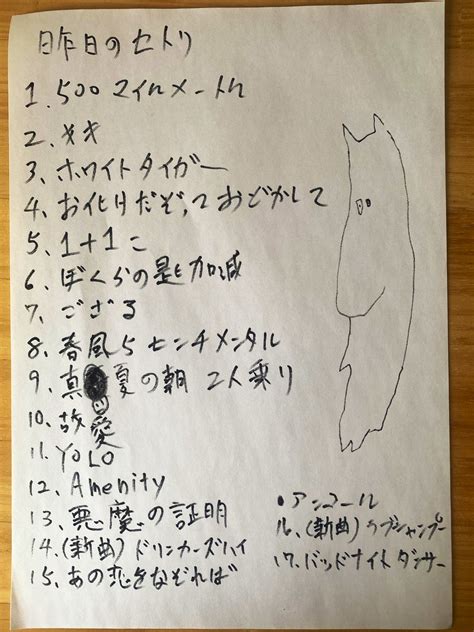 昨日のセトリ
1. 500マイルメートル
2. キキ
3、ホワイトタイガー
4、お化けだぞ,っておどかして
5、1+1こ
6、ぼくらの匙加減
7、ござる
8、春風5センチメンタル
9、真夏の朝 2人乗り
10、故愛
11、YOLO
12、Amenity
13、悪魔の証明
14、(新曲) ドリンカーズハイ
15、あの恋をなぞれば
・アンコール
16、(新曲) ラブシャンプー
17、バッドナイトダンサー